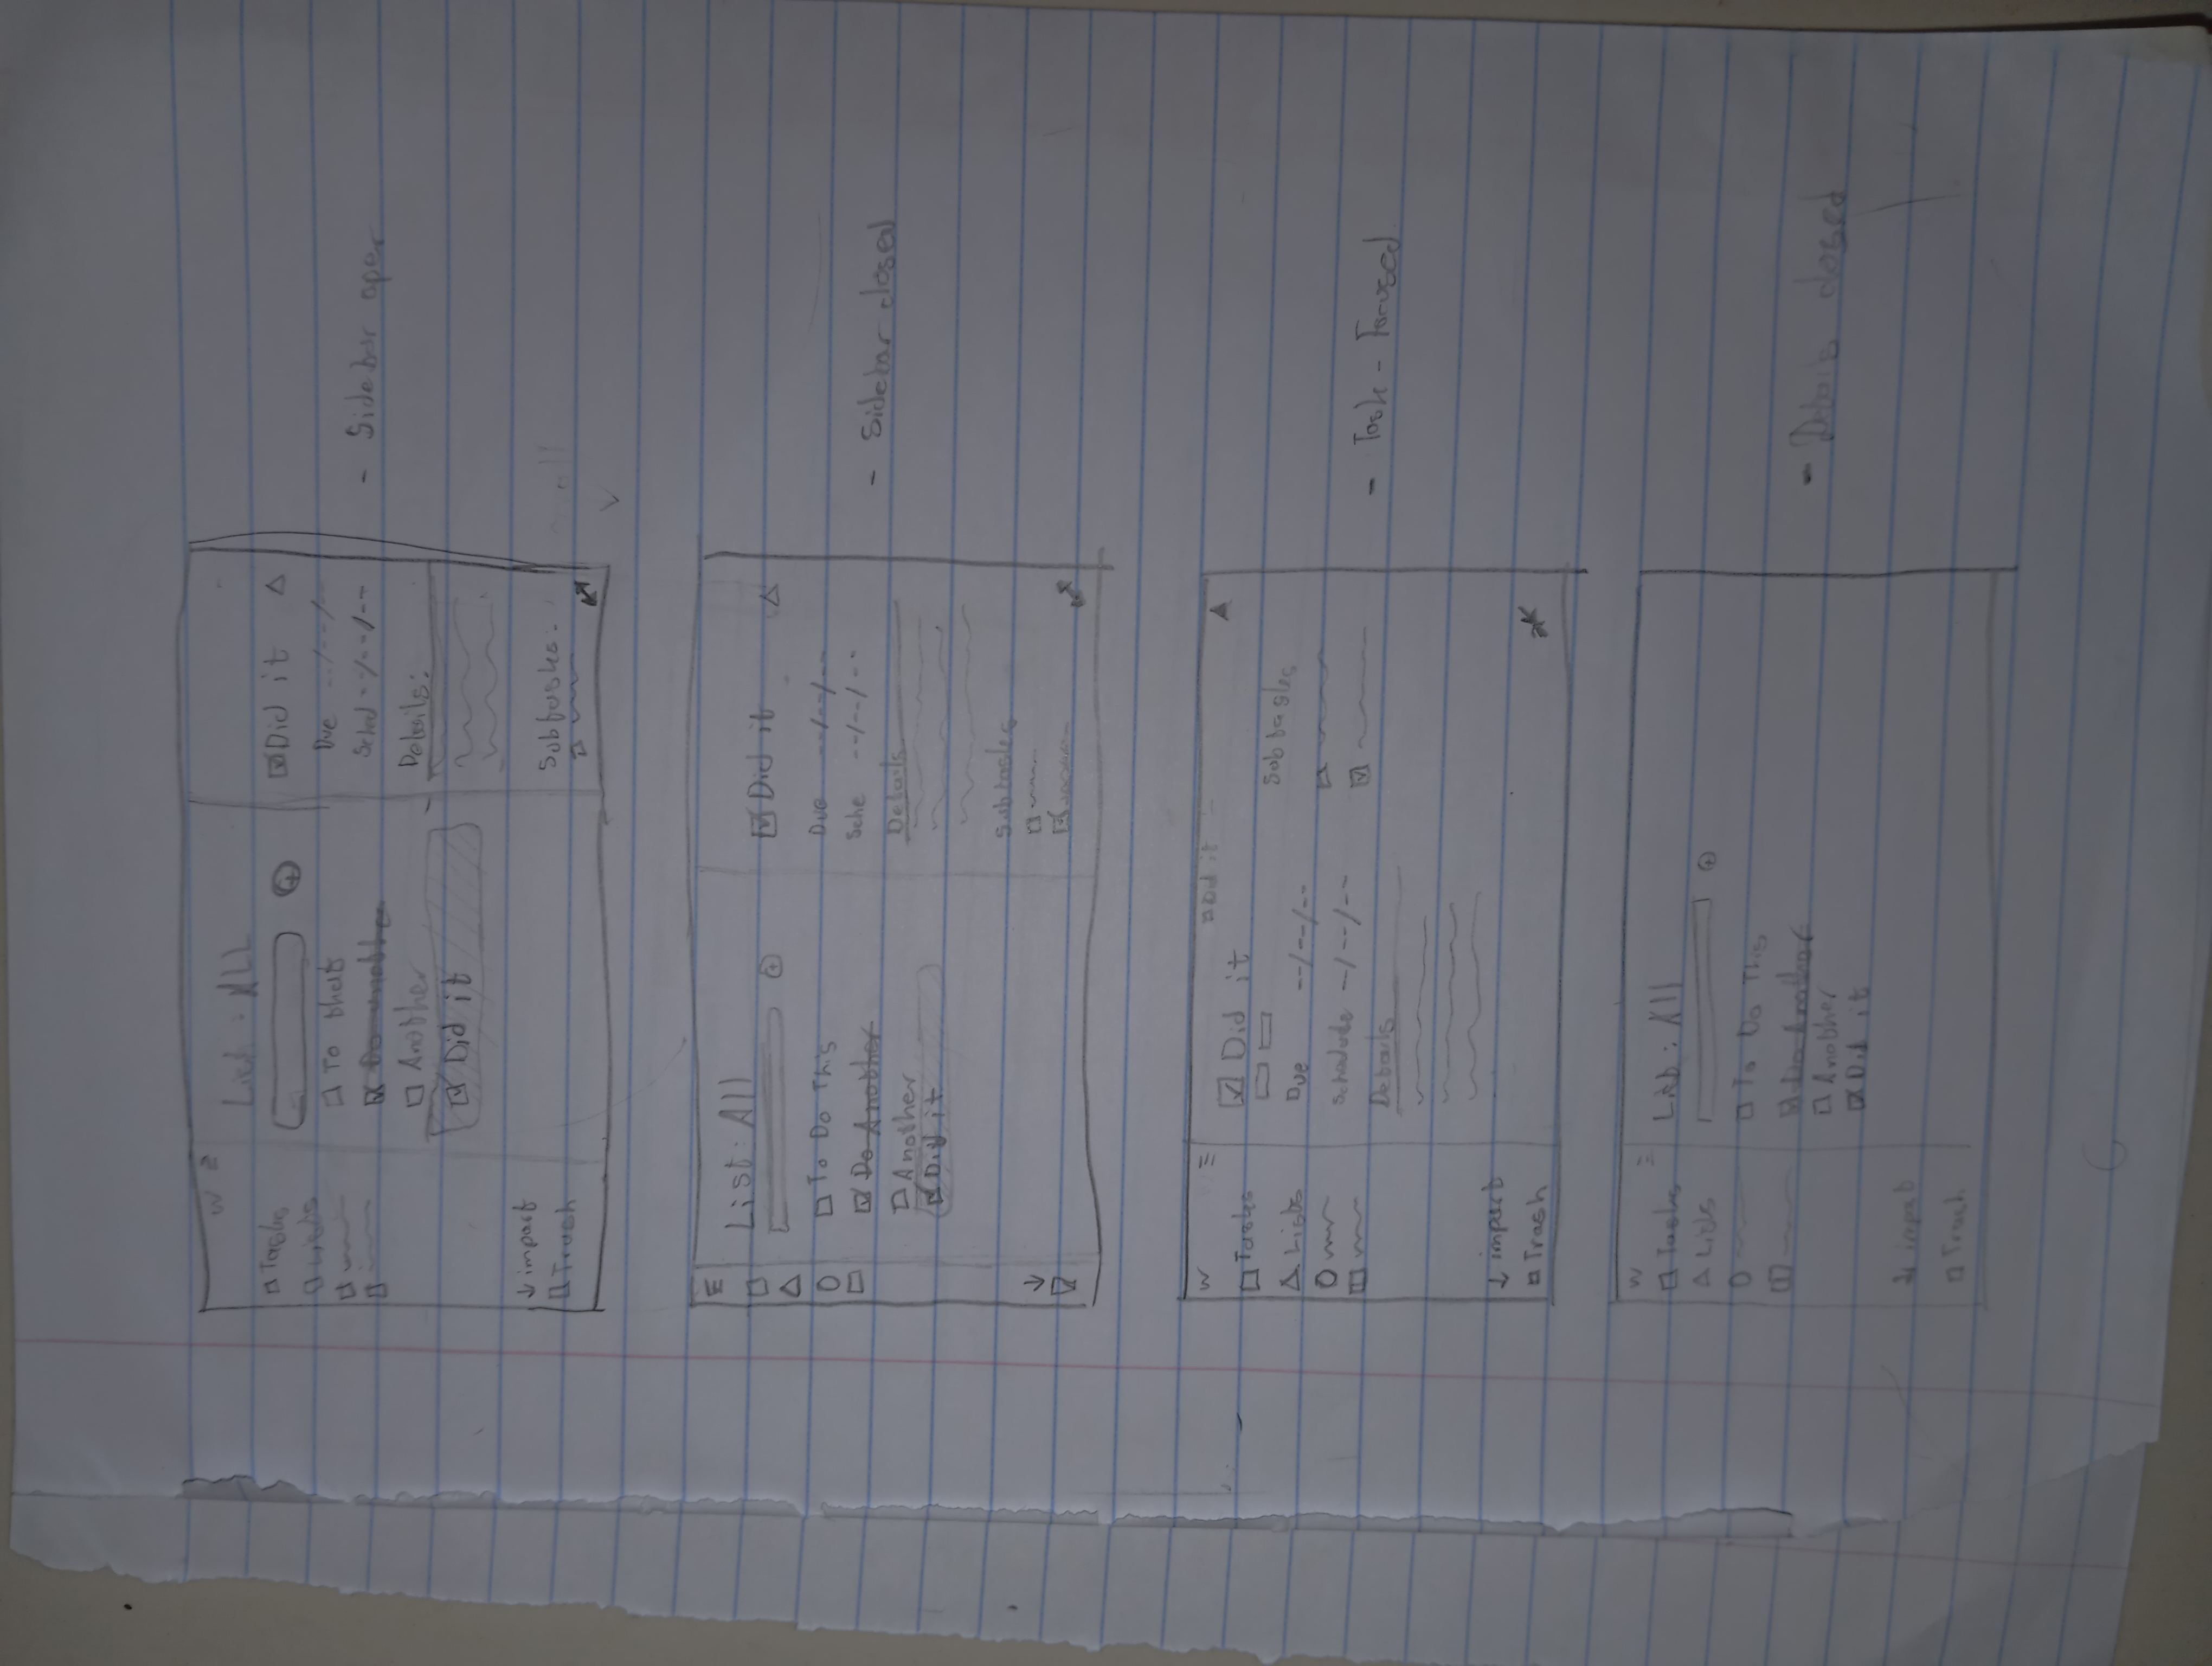 W
List: ALL
Tasks
Lists
To that
Do another
Another
Did it
import
Trash
Did it
Due --/--/--
Sched --/--/--
Details:
Subtasks:
- Sidebar open
List: All
To Do This
Do Another
Another
Did it
Did it
Due --/--/--
Sche --/--/--
Details
Subtasks
- Sidebar closed
W
Tasks
Lists
import
Trash
Did it
Did it
Due --/--/--
Schedule --/--/--
Details
Subtasks
- Task - Focused
W
Tasks
Lists
import
Trash
List: All
To Do This
Do Another
Another
Did it
- Details closed